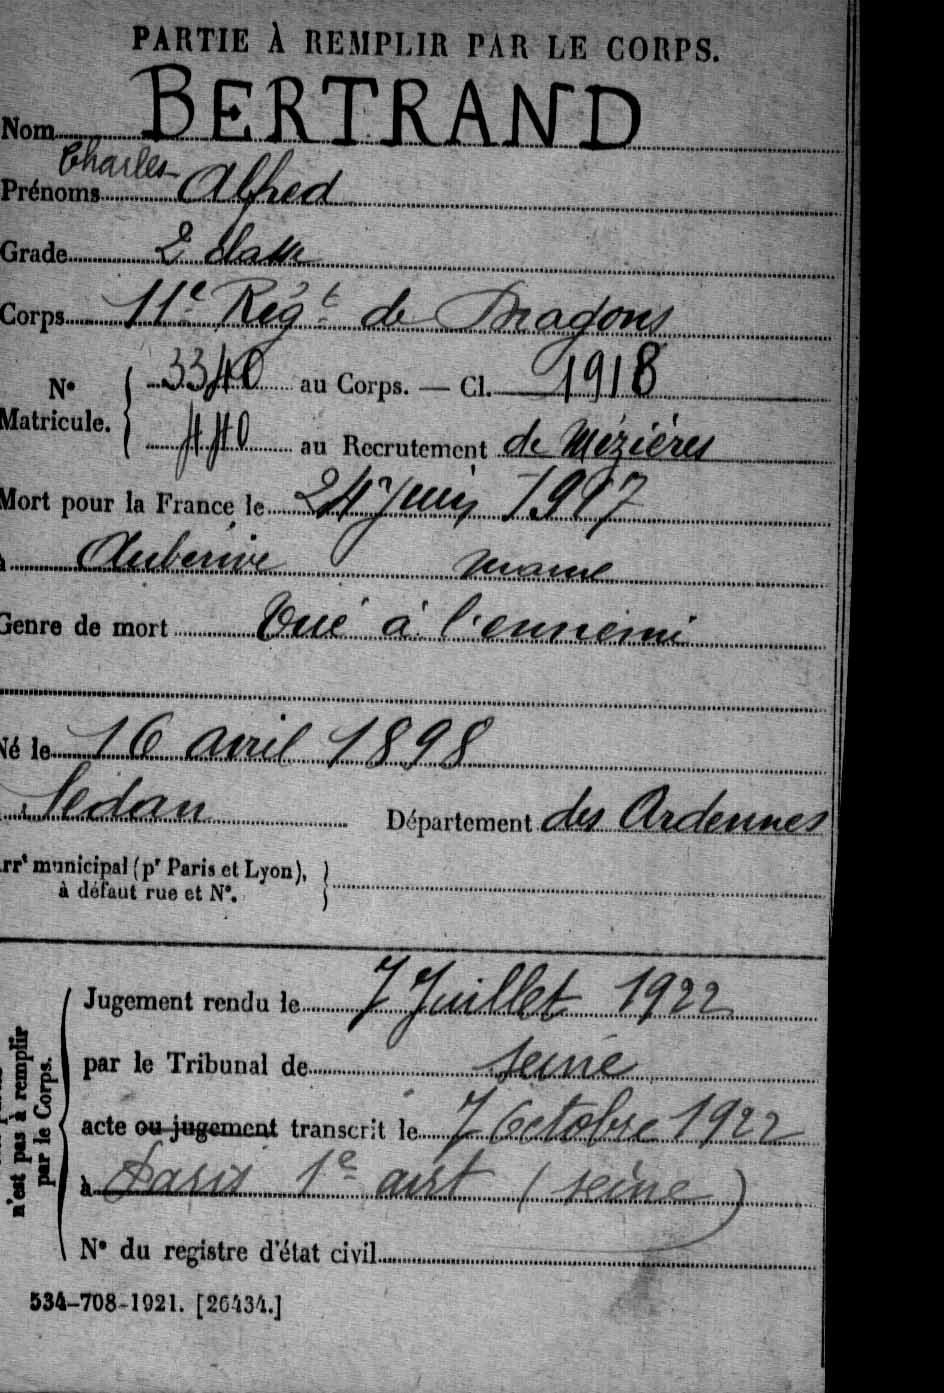 PARTIE À REMPLIR PAR LE CORPS.
Nom BERTRAND
Charles
Prénoms Alfred
Grade 2 classe
Corps 11e Régt de Dragons
N° Matricule. { 3340 au Corps. — Cl. 1918
440 au Recrutement de Mézières
Mort pour la France le 24 Juin 1917
à Auberive Marne
Genre de mort Tué à l'ennemi
Né le 16 avril 1898
à Sedan Département des Ardennes
Arrt municipal (pr Paris et Lyon),
à défaut rue et N°.
n'est pas à remplir
par le Corps.
Jugement rendu le 7 Juillet 1922
par le Tribunal de Seine
acte ou jugement transcrit le 7 Octobre 1922
à Paris 1e arrt (Seine)
N° du registre d'état civil
534-708-1921. [26434.]